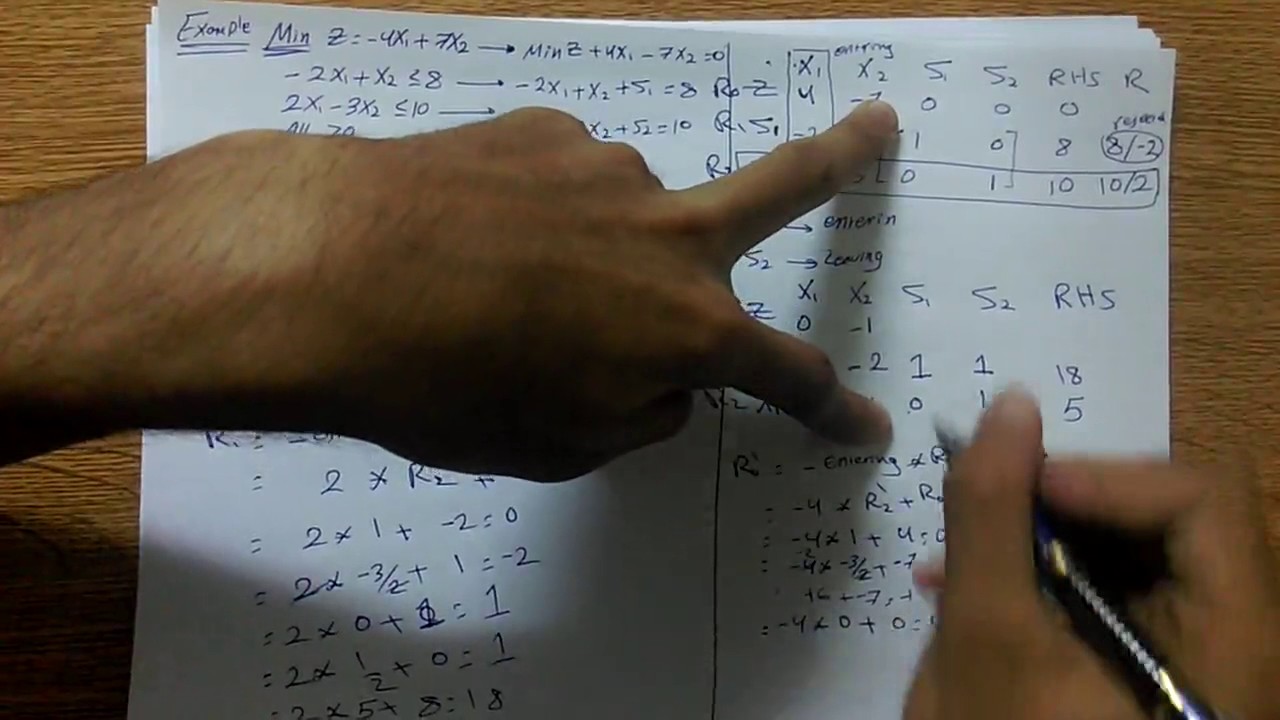 Example Min Z = -4X₁ + 7X₂ → Min Z + 4X₁ - 7X₂ = 0
-2X₁ + X₂ ≤ 8 → -2X₁ + X₂ + S₁ = 8
2X₁ - 3X₂ ≤ 10 → X₂ + S₂ = 10
All ≥0
entering
X₁ X₂ S₁ S₂ RHS R
R₀ Z 4 -7 0 0 0
R₁ S₁ -2 1 0 8 8/-2
10 10/2
0 1
→ enterin
S₂ → Leaving
X₁ X₂ S₁ S₂ RHS
Z 0 -1
-2 1 1 18
0 1 5
R₁ =
= 2 * R₂ +
= 2 * 1 + -2 = 0
= 2 * -3/2 + 1 = -2
= 2 * 0 + 1 = 1
= 2 * 1/2 + 0 = 1
= 2 * 5 + 8 = 18
R₀` = - Entering * R
= -4 * R₂` + R₀
= -4 * 1 + 4 = 0
= -4 * -3/2 + -7
+6 + -7 = -1
= -4 * 0 + 0 =